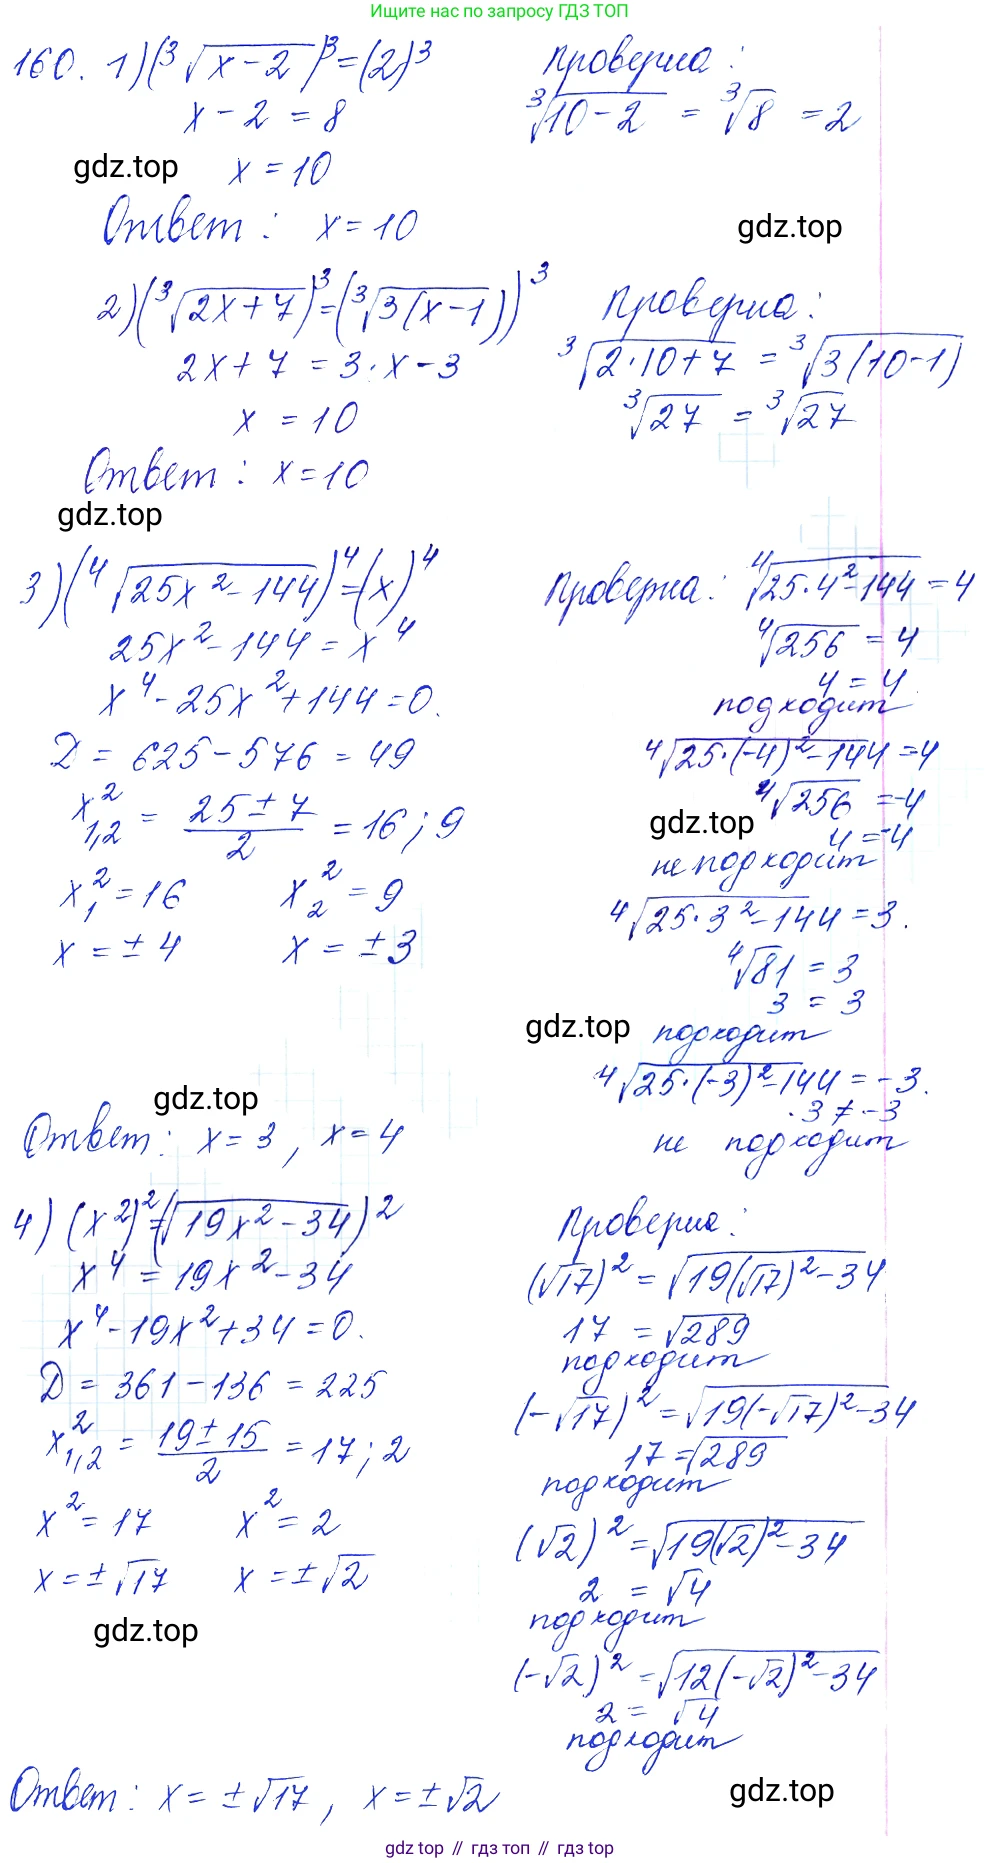 Ищите нас по запросу ГДЗ ТОП
160. 1) (∛(x-2))³=(2)³
x-2 = 8
gdz.top x = 10
Ответ: x = 10
Проверка:
∛(10-2) = ∛8 = 2
gdz.top
2) (∛(2x+7))³=(∛(3(x-1)))³
2x+7 = 3·x-3
x = 10
Ответ: x=10
gdz.top
Проверка:
∛(2·10+7) = ∛(3(10-1))
∛27 = ∛27
3) (⁴√(25x²-144))⁴=(x)⁴
25x²-144=x⁴
x⁴-25x²+144=0.
D = 625-576=49
x²₁,₂ = (25±7)/2 = 16; 9
x₁²=16 x₂²=9
x = ±4 x = ±3
Проверка: ⁴√(25·4²-144)=4
⁴√256 = 4
4 = 4.
подходит
⁴√(25·(-4)²-144)=-4
⁴√256 =-4
gdz.top 4=-4
не подходит
⁴√(25·3²-144)=3.
⁴√81 = 3
3 = 3
gdz.top подходит
⁴√(25·(-3)²-144)=-3.
3 ≠ -3
не подходит
gdz.top
Ответ: x=3, x=4
4) (x²)²=(√(19x²-34))²
x⁴=19x²-34
x⁴-19x²+34=0.
D = 361-136=225
x²₁,₂ = (19±15)/2 = 17; 2
x²=17 x²=2
x=±√17 x=±√2
gdz.top
Проверка:
(√17)² = √(19(√17)²-34)
17 = √289
подходит
(-√17)²=√(19(-√17)²-34)
17=√289
подходит
(√2)²=√(19(√2)²-34)
2 = √4
подходит
(-√2)²=√(12(-√2)²-34)
2 = √4
подходит
Ответ: x=±√17, x=±√2
gdz.top
gdz top // гдз топ // gdz top